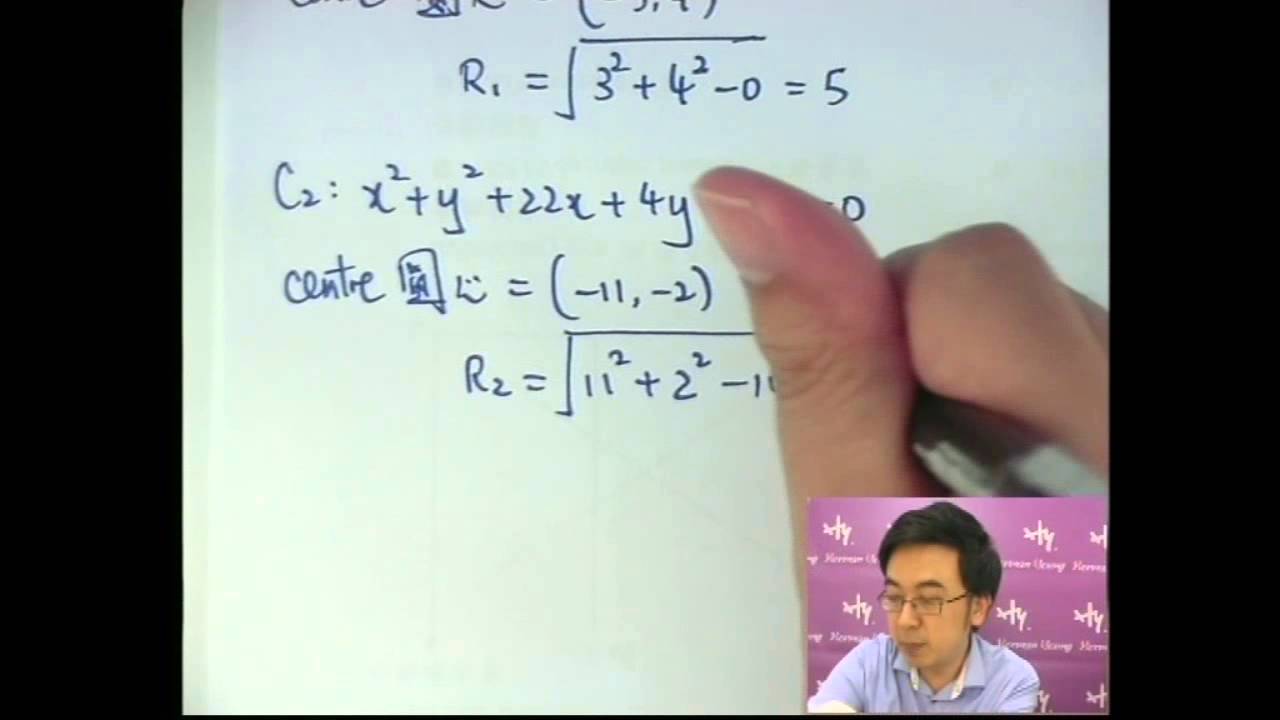 centre 圓心 = (-3, 4)
R₁ = √(3² + 4² - 0) = 5
C₂: x² + y² + 22x + 4y = 0
centre 圓心 = (-11, -2)
R₂ = √(11² + 2² - 11
Herman Yeung